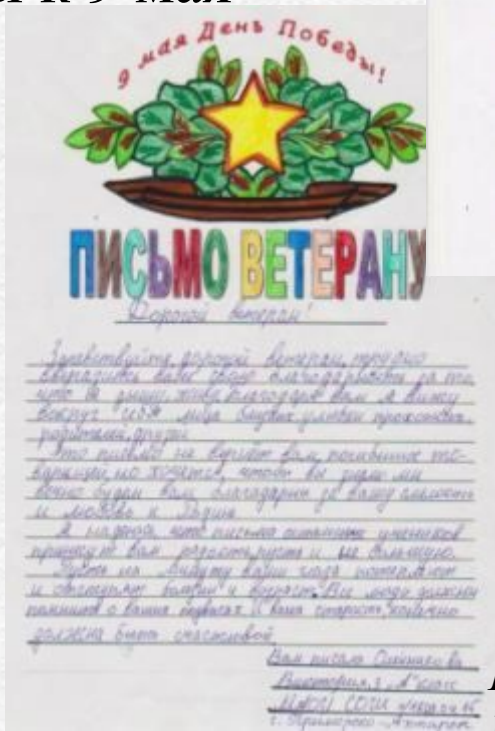 к 9 Мая
9 мая День Победы!
ПИСЬМО ВЕТЕРАНУ
Дорогой ветеран!
Здравствуйте, дорогой ветеран, трудно
выразить вам свою благодарность за то,
что я дышу, живу, благодаря вам я вижу
вокруг себя лица близких, улыбки прохожих,
родителей, друзей
Это письмо не вернёт вам погибших то-
варищей, но хочется, чтобы вы знали мы
вечно будем вам благодарны за вашу смелость
и любовь к Родине
Я надеюсь, что письма остальных учеников
принесут вам радость, пусть и не большую.
Пусть на минуту ваши года
и отступят болезни и возраст. Все люди должны
помнить о ваших подвигах. И ваша старость, конечно
должна быть счастливой
Вам писала
Виктория, "А" класс
МБОУ СОШ
г. Приморско-Ахтарск